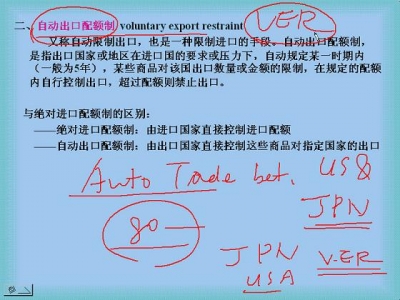 二、自动出口配额制 voluntary export restraint VER
又称自动限制出口，也是一种限制进口的手段。自动出口配额制，
是指出口国家或地区在进口国的要求或压力下，自动规定某一时期内
（一般为5年），某些商品对该国出口数量或金额的限制，在规定的配额
内自行控制出口，超过配额则禁止出口。
与绝对进口配额制的区别：
——绝对进口配额制：由进口国家直接控制进口配额
——自动出口配额制：由出口国家直接控制这些商品对指定国家的出口
Auto Trade bet. US &
JPN
80
JPN V.ER
USA